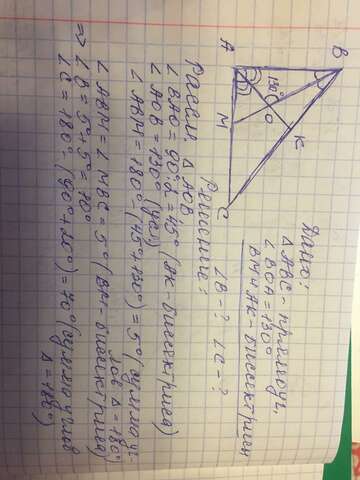 B
A
C
K
M
O
130°
Дано:
△ABC - прямоуг.
∠BOA = 130°
BM и AK - биссектрисы
∠B - ? ∠C - ?
Решение:
Рассм. △AOB,
∠BAO = 90°:2 = 45° (AK - биссектриса)
∠AOB = 130° (усл)
∠ABM = 180° - (45° + 130°) = 5° (сумма уг-
лов △ = 180°)
∠ABM = ∠MBC = 5° (BM - биссектриса)
=> ∠B = 5° + 5° = 10°
∠C = 180° - (90° + 10°) = 80° (сумма углов
△ = 180°)